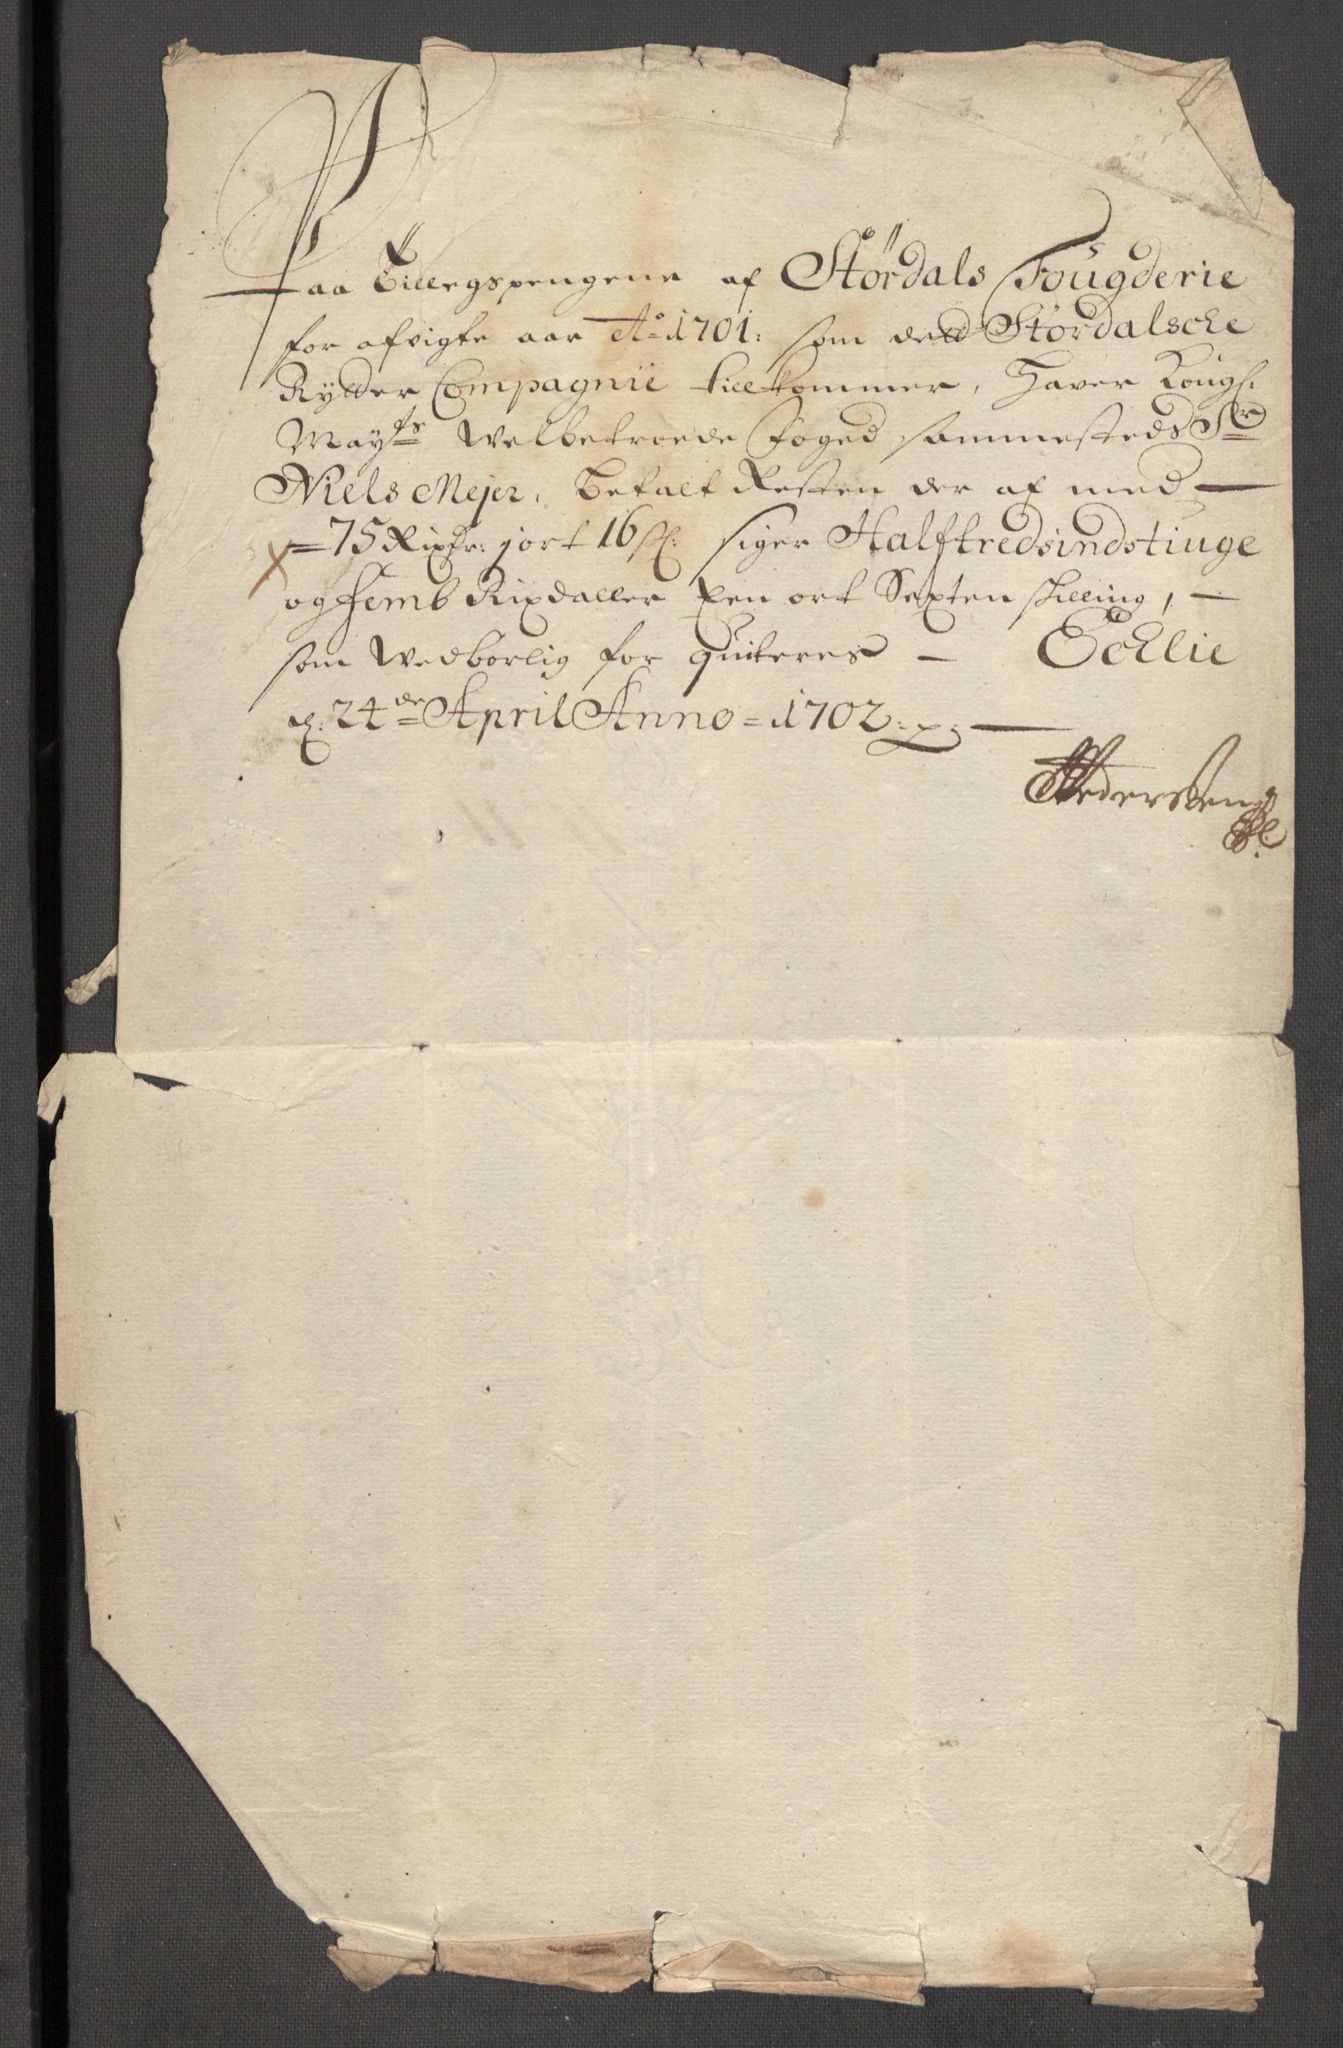 Paa Tillegspengene af Størdals Fougderie
for afvigte aar Ao 1701: som ded Størdalsche
Rytter Compagnie tillkommer, Haver Kongl:
Mayts Welbetroede Foged sammesteds Sr
Niels Mejer, betalt Resten der af med —
= 75 Rixdr: 1 ort 16 s: siger Halftredsindstiuge
og Femb Rixdaller Een ort Sexten skilling, —
som Wedbørlig for quiteres — Echlie
d: 24de April Anno = 1702: